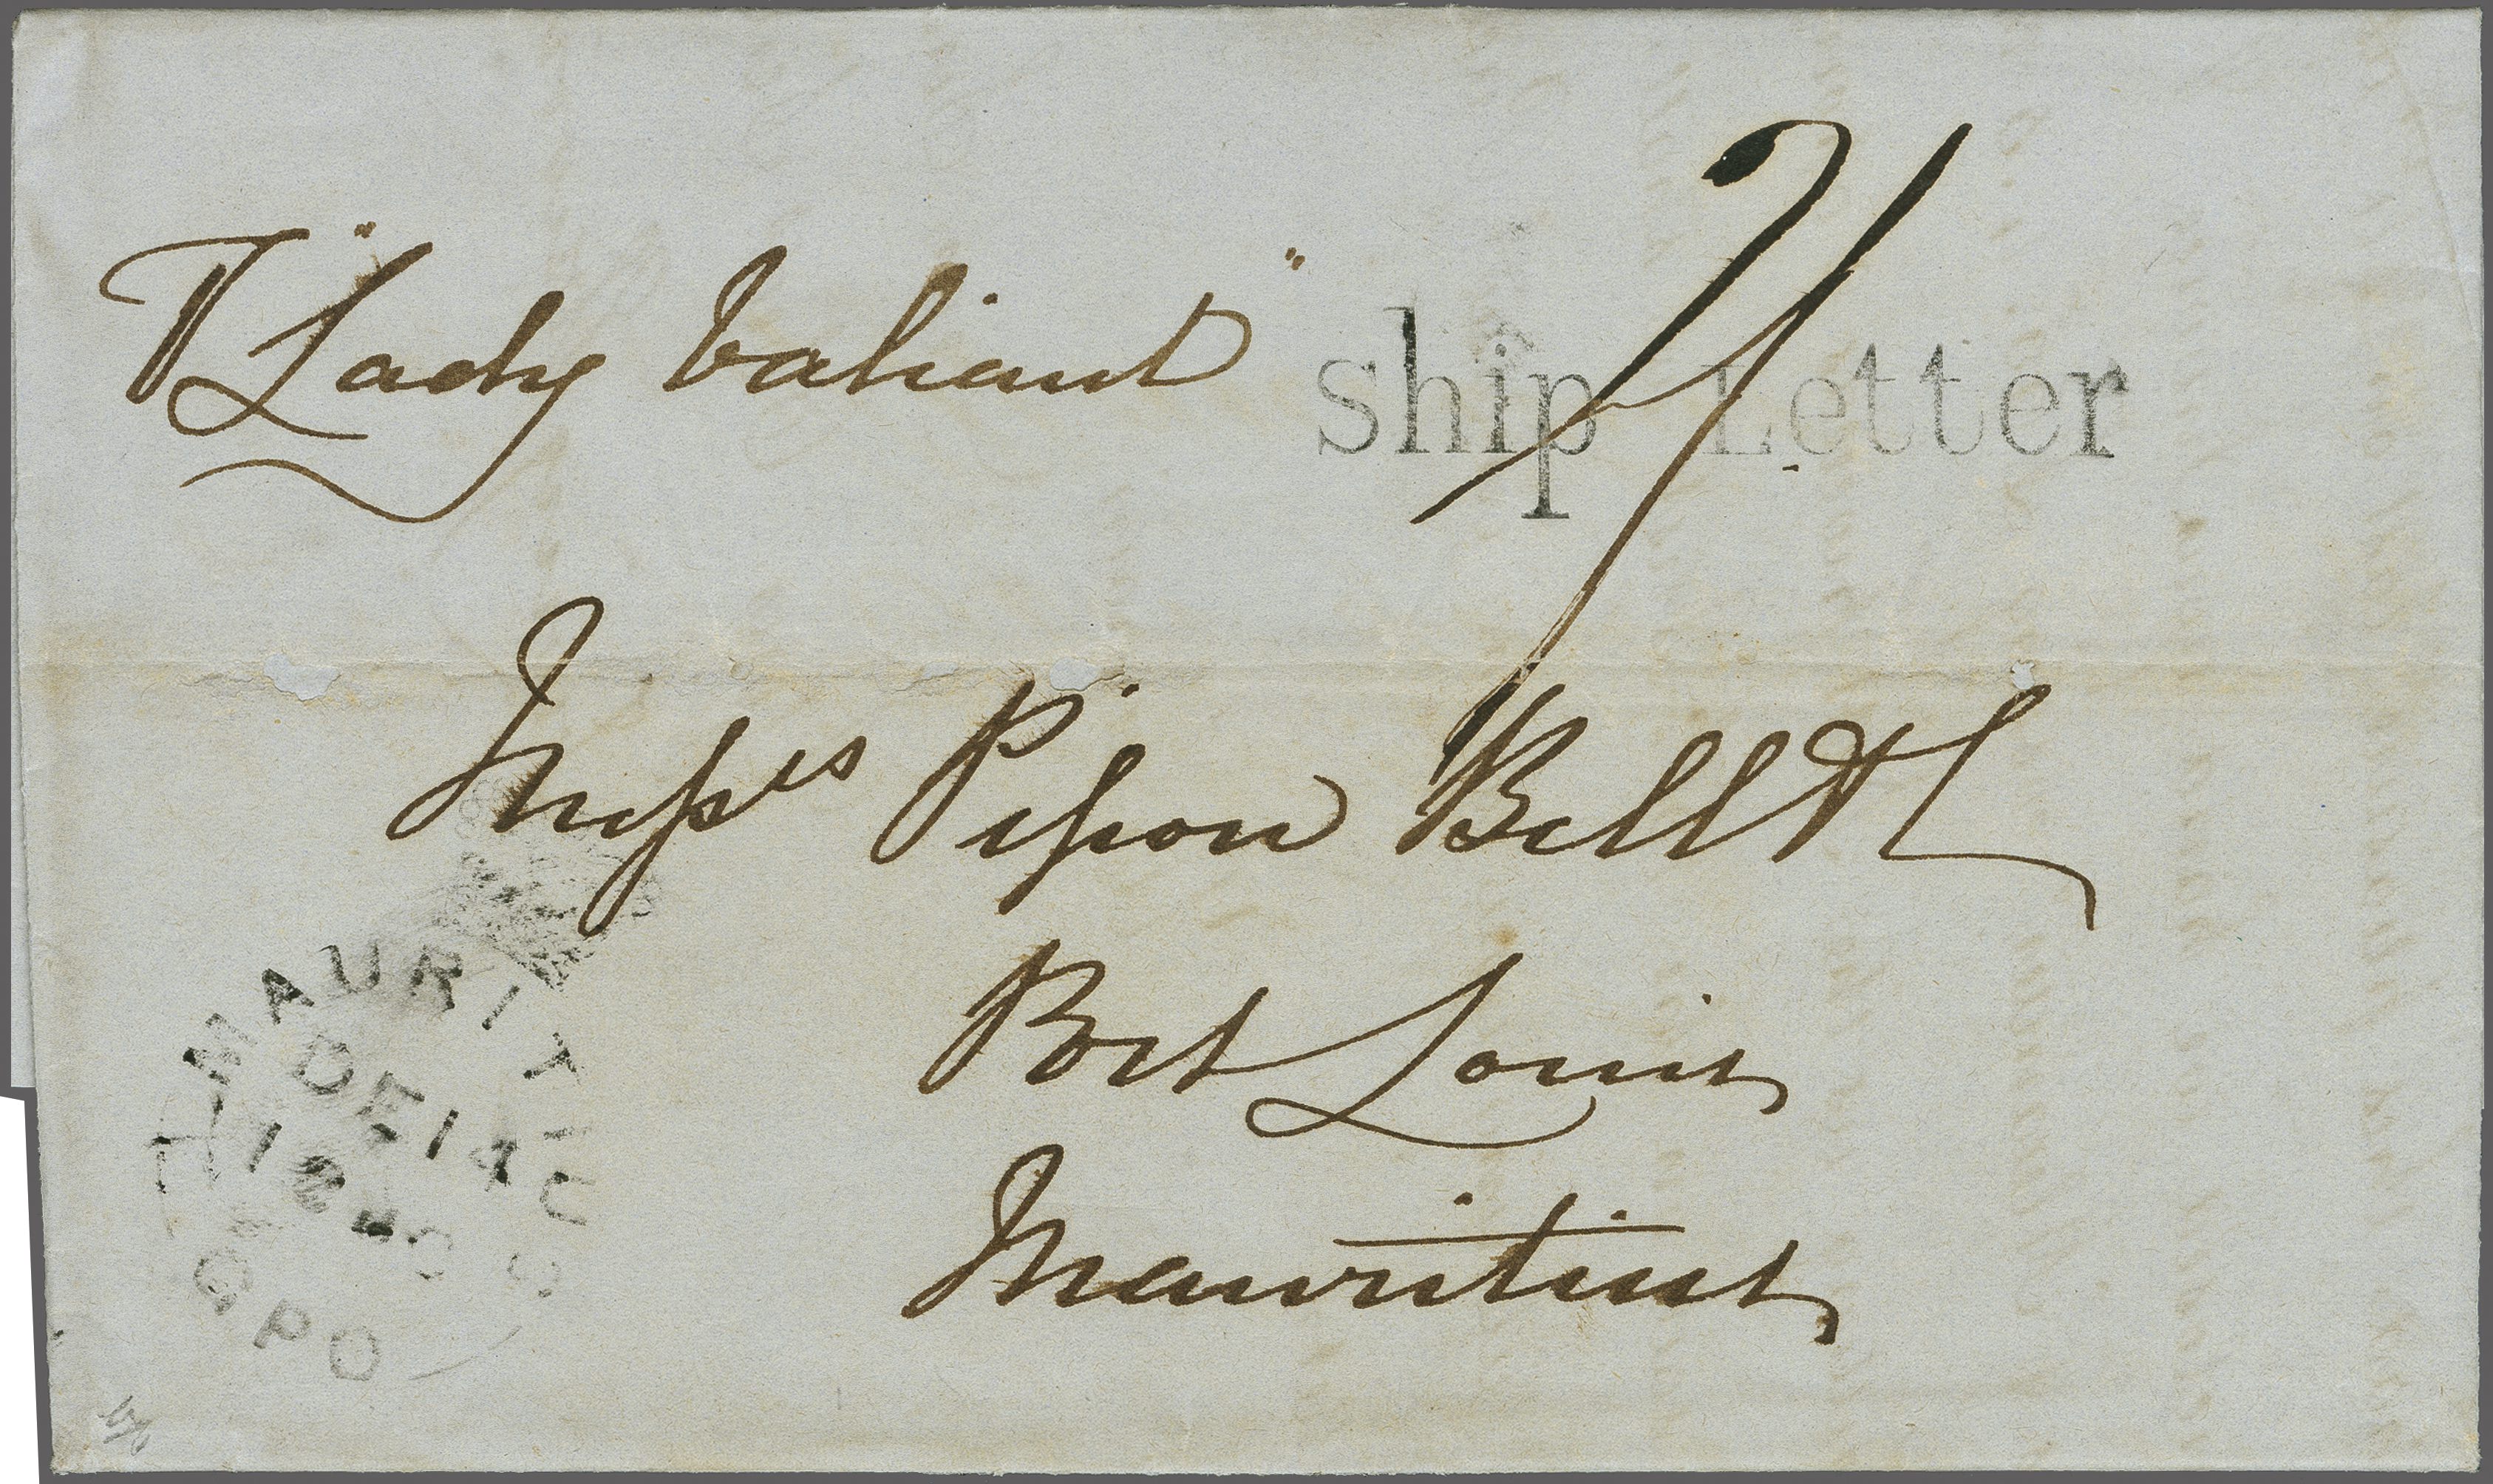 "Lady Valiant"
Ship Letter
Messrs Pipon Bell & Co
Port Louis
Mauritius
MAURITIUS
DE 14
GPO